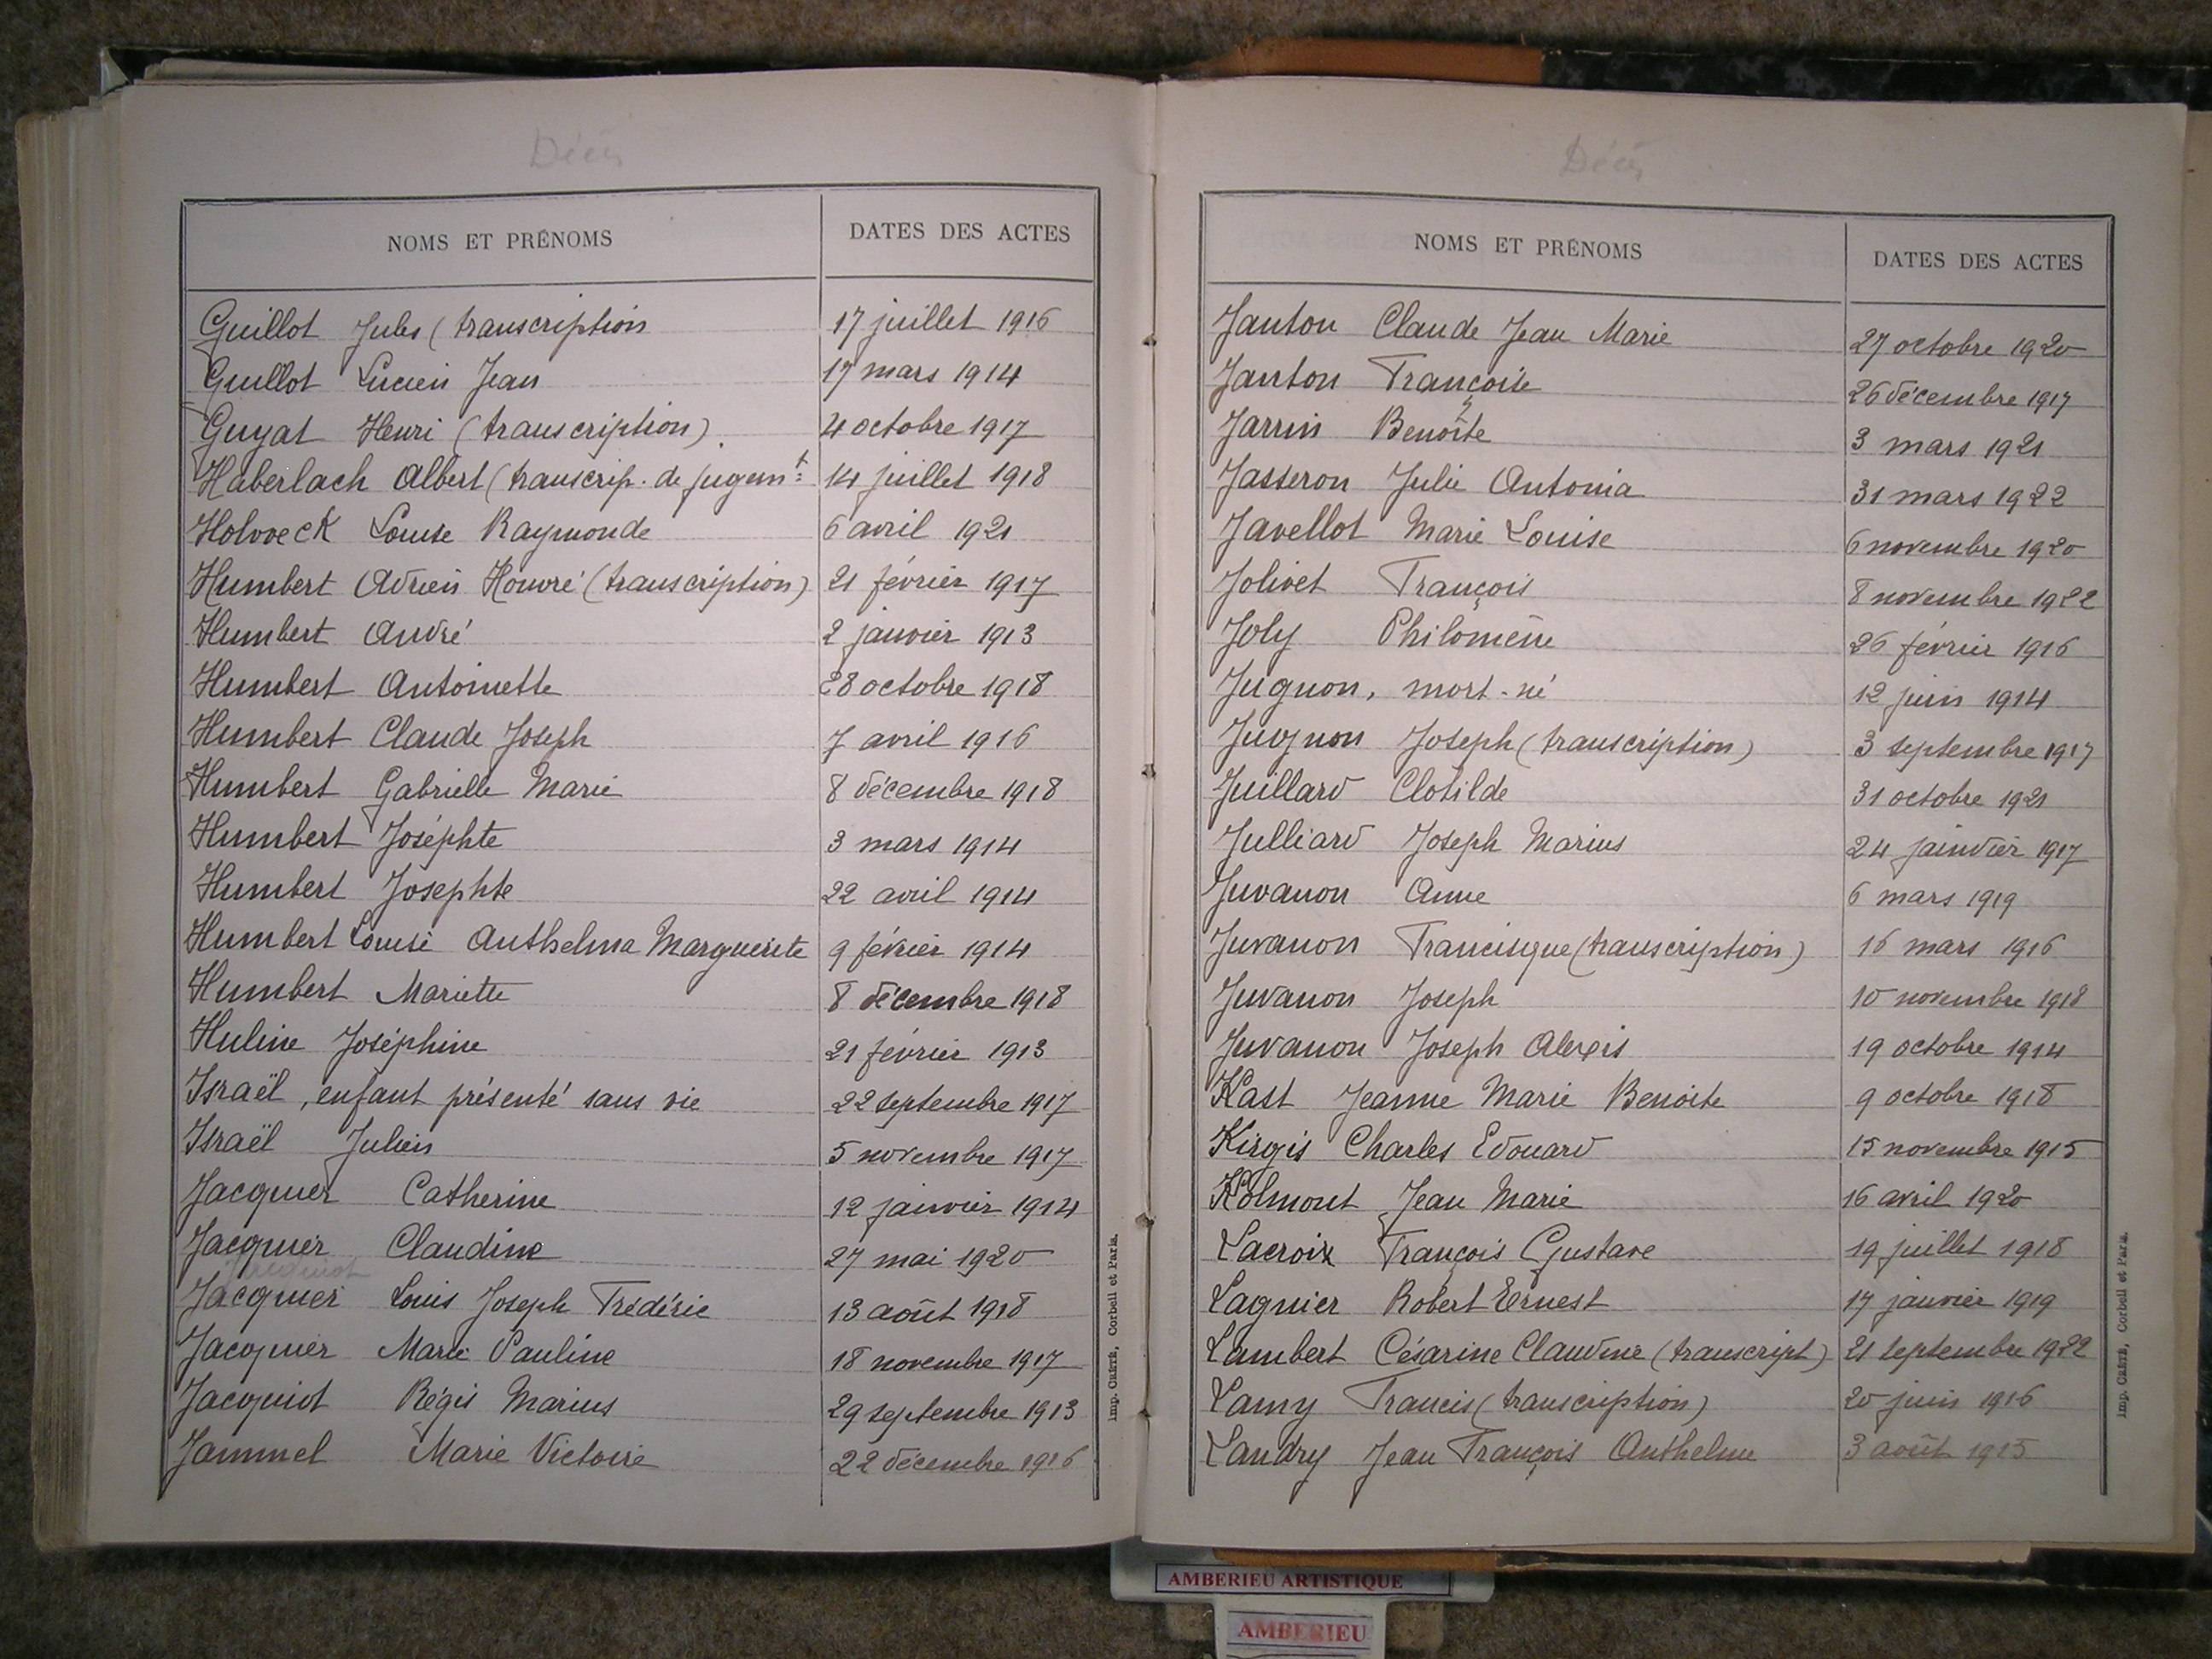 Décès
NOMS ET PRÉNOMS DATES DES ACTES
Guillot Jules (transcription 17 juillet 1916
Guillot Lucien Jean 17 mars 1914
Guyat Henri (transcription). 4 octobre 1917
Haberlach Albert (transcrip. de jugemt 14 juillet 1918
Holvoeck Louise Raymonde 6 avril 1921
Humbert Adrien Honoré (transcription) 21 février 1917
Humbert André 2 janvier 1913
Humbert Antoinette 28 octobre 1918
Humbert Claude Joseph 7 avril 1916
Humbert Gabrielle Marie 8 décembre 1918
Humbert Joséphte 3 mars 1914
Humbert Josephte 22 avril 1914
Humbert Louise Anthelma Marguerite 9 février 1914
Humbert Mariette 8 décembre 1918
Huline Joséphine 21 février 1913
Israël, enfant présenté sans vie 22 septembre 1917
Israël Julien 5 novembre 1917
Jacquier Catherine 12 janvier 1914
Jacquier Claudine 27 mai 1920
Jacquiot
Jacquier Louis Joseph Frédéric 13 août 1918
Jacquier Marie Pauline 18 novembre 1917
Jacquiot Régis Marius 29 septembre 1913
Jammel Marie Victoire 22 décembre 1916
Imp. CRÉTÉ, Corbeil et Paris.
Décès
NOMS ET PRÉNOMS DATES DES ACTES
Janton Claude Jean Marie 27 octobre 1920
Janton Françoise 26 décembre 1917
Jarrin Benoîte 3 mars 1921
Jasseron Julie Antonia 31 mars 1922
Javellot Marie Louise 6 novembre 1920
Jolivet François 8 novembre 1922
Joly Philomène 26 février 1916
Jugnon, mort-né 12 juin 1914
Jugnon Joseph (transcription) 3 septembre 1917
Juillard Clotilde 31 octobre 1921
Julliard Joseph Marius 24 janvier 1917
Juvanon Anne 6 mars 1919
Juvanon Francisque (transcription) 16 mars 1916
Juvanon Joseph 10 novembre 1918
Juvanon Joseph Alexis 19 octobre 1914
Kast Jeanne Marie Benoite 9 octobre 1918
Kirgis Charles Edouard 15 novembre 1915
Kolmont Jean Marie 16 avril 1920
Lacroix François Gustave 19 juillet 1918
Lagnier Robert Ernest 17 janvier 1919
Lambert Césarine Claudine (transcript) 21 septembre 1922
Lamy Francis (transcription) 20 juin 1916
Landry Jean François Anthelme 3 août 1915
Imp. CRÉTÉ, Corbeil et Paris.
AMBERIEU ARTISTIQUE
AMBERIEU